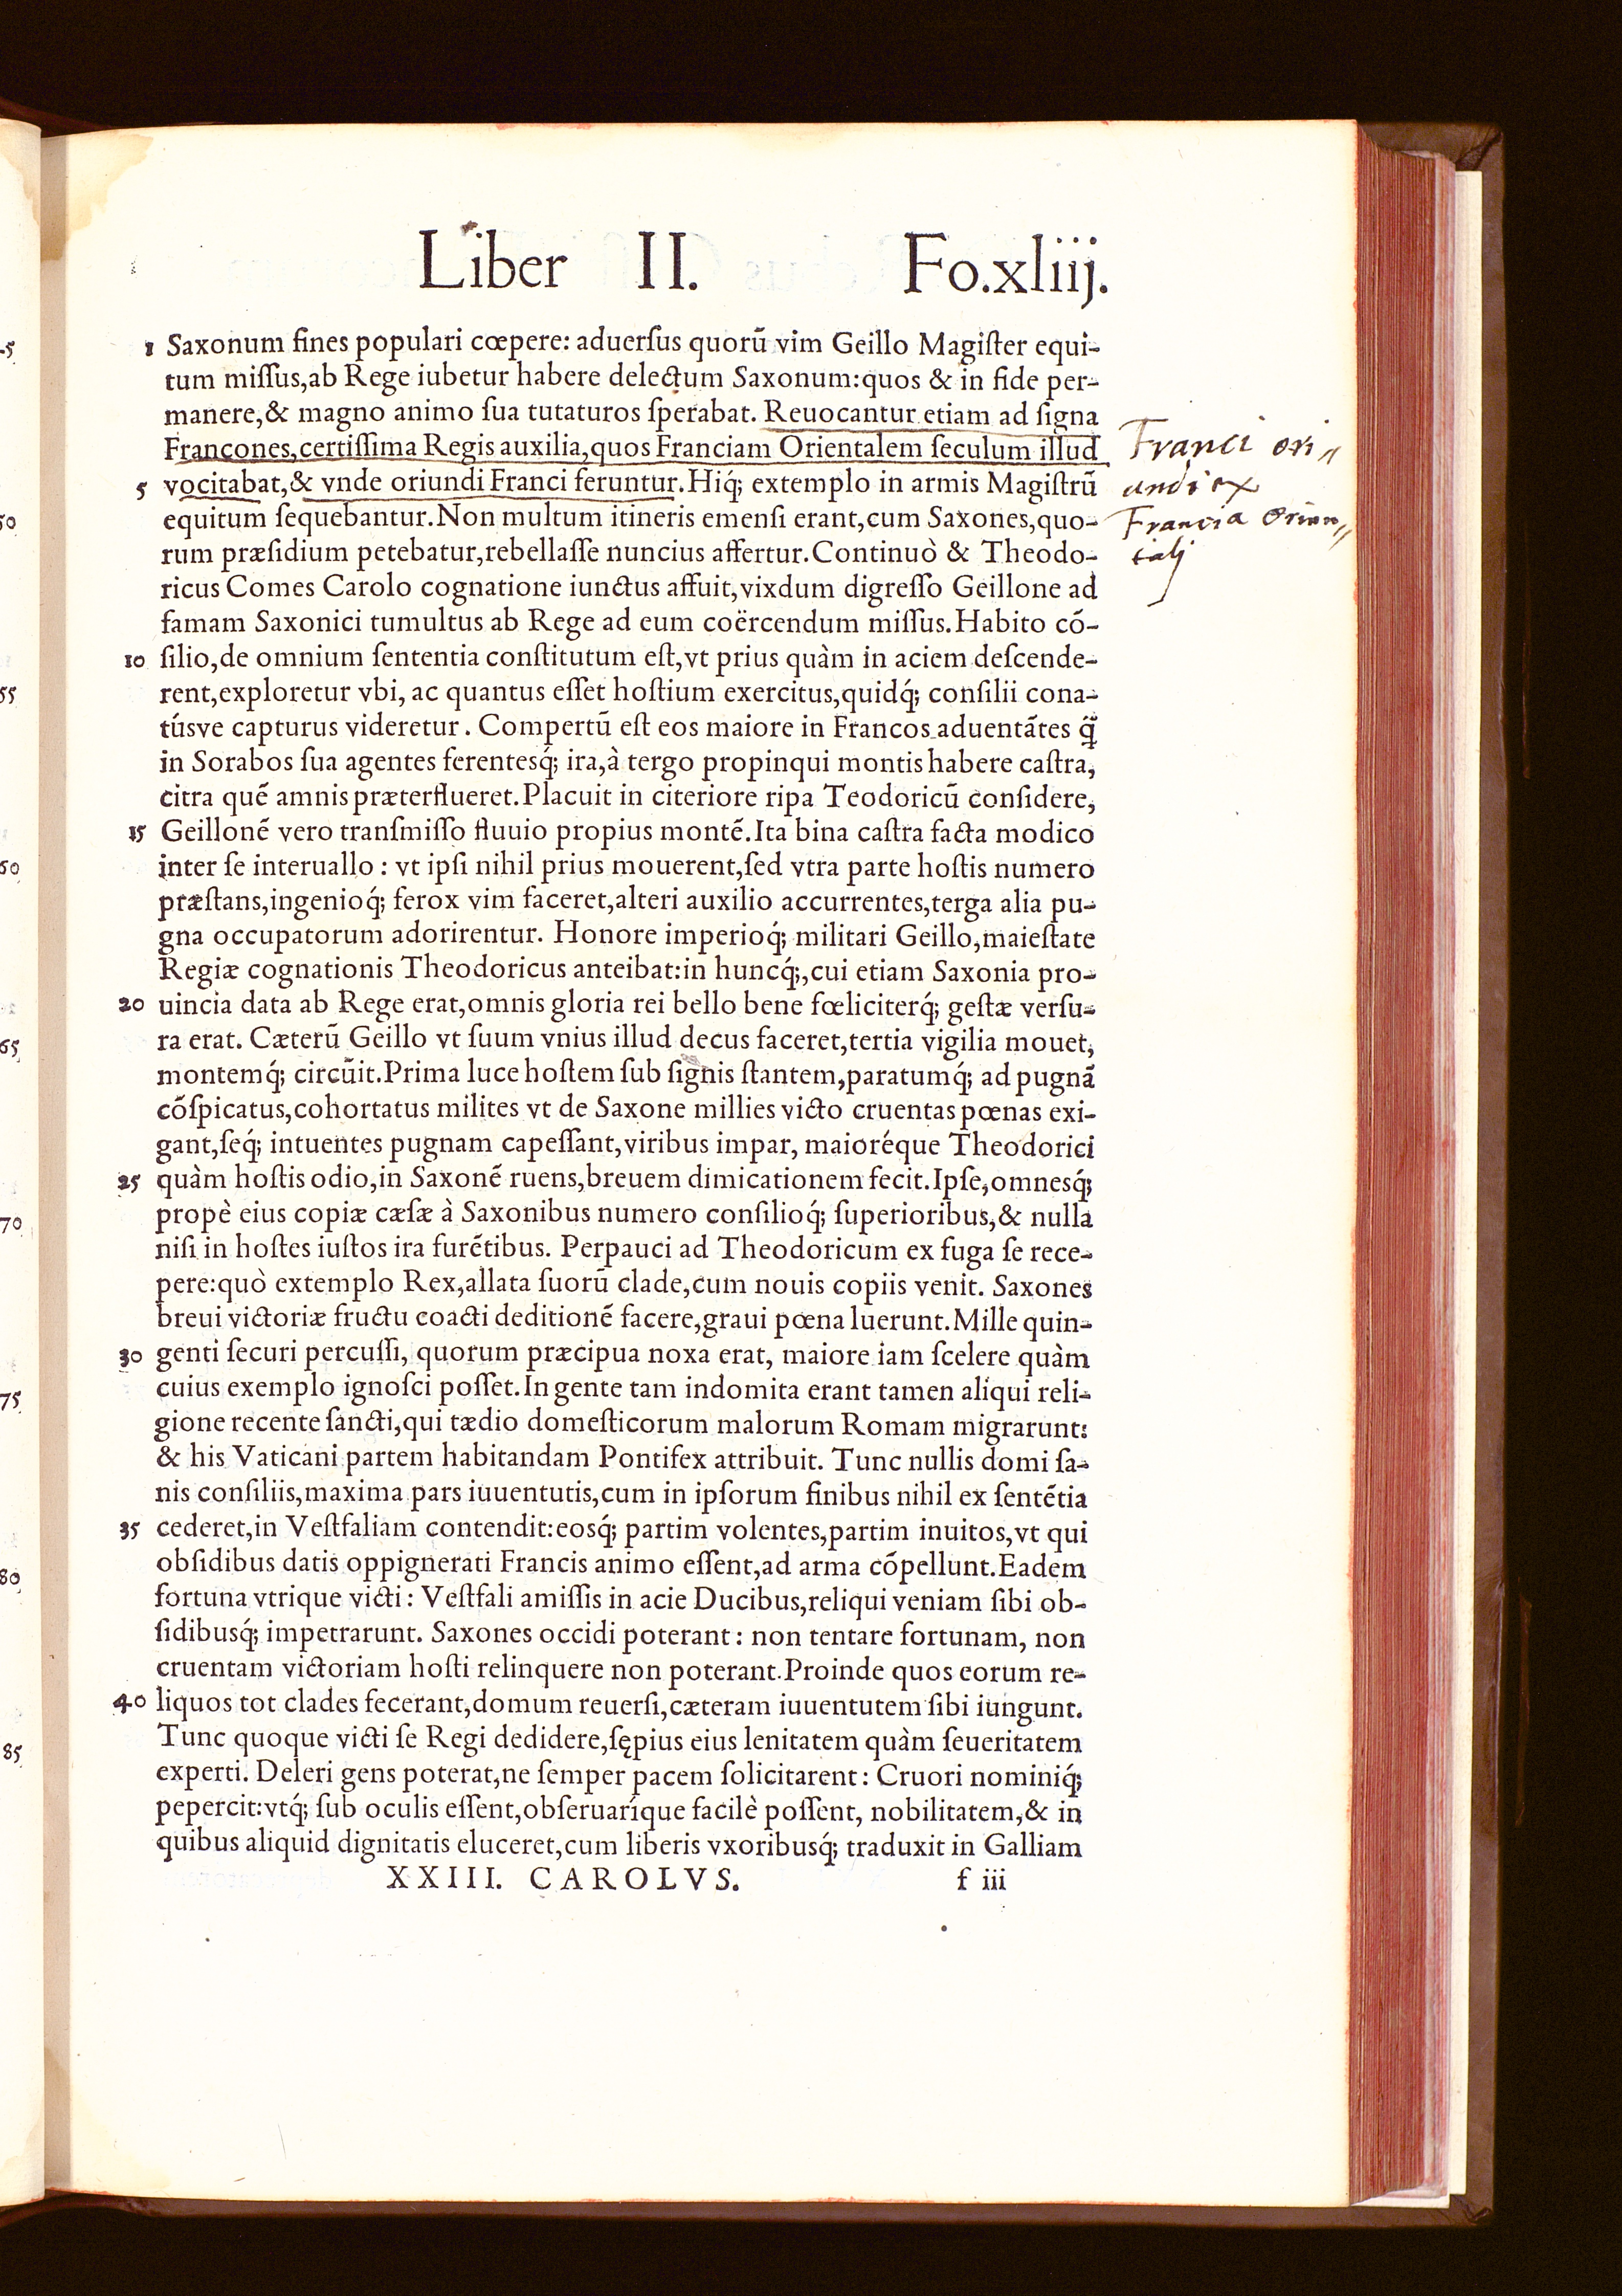 Liber II. Fo.xliij.
1 Saxonum fines populari cœpere: aduerſus quorũ vim Geillo Magiſter equi-
tum miſſus,ab Rege iubetur habere delectum Saxonum:quos & in fide per-
manere,& magno animo ſua tutaturos ſperabat. Reuocantur etiam ad ſigna
Francones,certiſſima Regis auxilia,quos Franciam Orientalem ſeculum illud
5 vocitabat,& vnde oriundi Franci feruntur.Hiq́; extemplo in armis Magiſtrũ
equitum ſequebantur.Non multum itineris emenſi erant,cum Saxones,quo-
rum præſidium petebatur,rebellaſſe nuncius affertur.Continuò & Theodo-
ricus Comes Carolo cognatione iunctus affuit,vixdum digreſſo Geillone ad
famam Saxonici tumultus ab Rege ad eum coërcendum miſſus.Habito cõ-
10 ſilio,de omnium ſententia conſtitutum eſt,vt prius quàm in aciem deſcende-
rent,exploretur vbi, ac quantus eſſet hoſtium exercitus,quidq́; conſilii cona-
túsve capturus videretur. Compertũ eſt eos maiore in Francos aduentãtes q̃
in Sorabos ſua agentes ferentesq́; ira,à tergo propinqui montis habere caſtra,
citra quẽ amnis præterflueret.Placuit in citeriore ripa Teodoricũ conſidere,
15 Geillonẽ vero tranſmiſſo fluuio propius montẽ.Ita bina caſtra facta modico
inter ſe interuallo: vt ipſi nihil prius mouerent,ſed vtra parte hoſtis numero
præſtans,ingenioq́; ferox vim faceret,alteri auxilio accurrentes,terga alia pu-
gna occupatorum adorirentur. Honore imperioq́; militari Geillo,maieſtate
Regiæ cognationis Theodoricus anteibat:in huncq́;,cui etiam Saxonia pro-
20 uincia data ab Rege erat,omnis gloria rei bello bene fœliciterq́; geſtæ verſu-
ra erat. Cæterũ Geillo vt ſuum vnius illud decus faceret,tertia vigilia mouet,
montemq́; circũit.Prima luce hoſtem ſub ſignis ſtantem,paratumq́; ad pugnã
cõſpicatus,cohortatus milites vt de Saxone millies victo cruentas pœnas exi-
gant,ſeq́; intuentes pugnam capeſſant,viribus impar, maioréque Theodorici
25 quàm hoſtis odio,in Saxonẽ ruens,breuem dimicationem fecit.Ipſe,omnesq́;
propè eius copiæ cæſæ à Saxonibus numero conſilioq́; ſuperioribus,& nulla
niſi in hoſtes iuſtos ira furẽtibus. Perpauci ad Theodoricum ex fuga ſe rece-
pere:quò extemplo Rex,allata ſuorũ clade,cum nouis copiis venit. Saxones
breui victoriæ fructu coacti deditionẽ facere,graui pœna luerunt.Mille quin-
30 genti ſecuri percuſſi, quorum præcipua noxa erat, maiore iam ſcelere quàm
cuius exemplo ignoſci poſſet.In gente tam indomita erant tamen aliqui reli-
gione recente ſancti,qui tædio domeſticorum malorum Romam migrarunt:
& his Vaticani partem habitandam Pontifex attribuit. Tunc nullis domi ſa-
nis conſiliis,maxima pars iuuentutis,cum in ipſorum finibus nihil ex ſentẽtia
35 cederet,in Veſtfaliam contendit:eosq́; partim volentes,partim inuitos,vt qui
obſidibus datis oppignerati Francis animo eſſent,ad arma cõpellunt.Eadem
fortuna vtrique victi: Veſtfali amiſſis in acie Ducibus,reliqui veniam ſibi ob-
ſidibusq́; impetrarunt. Saxones occidi poterant: non tentare fortunam, non
cruentam victoriam hoſti relinquere non poterant.Proinde quos eorum re-
40 liquos tot clades fecerant,domum reuerſi,cæteram iuuentutem ſibi iungunt.
Tunc quoque victi ſe Regi dedidere,ſępius eius lenitatem quàm ſeueritatem
experti. Deleri gens poterat,ne ſemper pacem ſolicitarent: Cruori nominiq́;
pepercit:vtq́; ſub oculis eſſent,obſeruaríque facilè poſſent, nobilitatem,& in
quibus aliquid dignitatis eluceret,cum liberis vxoribusq́; traduxit in Galliam
XXIII. CAROLVS. f iii
Franci ori〃
undi ex
Francia Orien〃
tali
-5
50
55
60
65
70
75
80
85